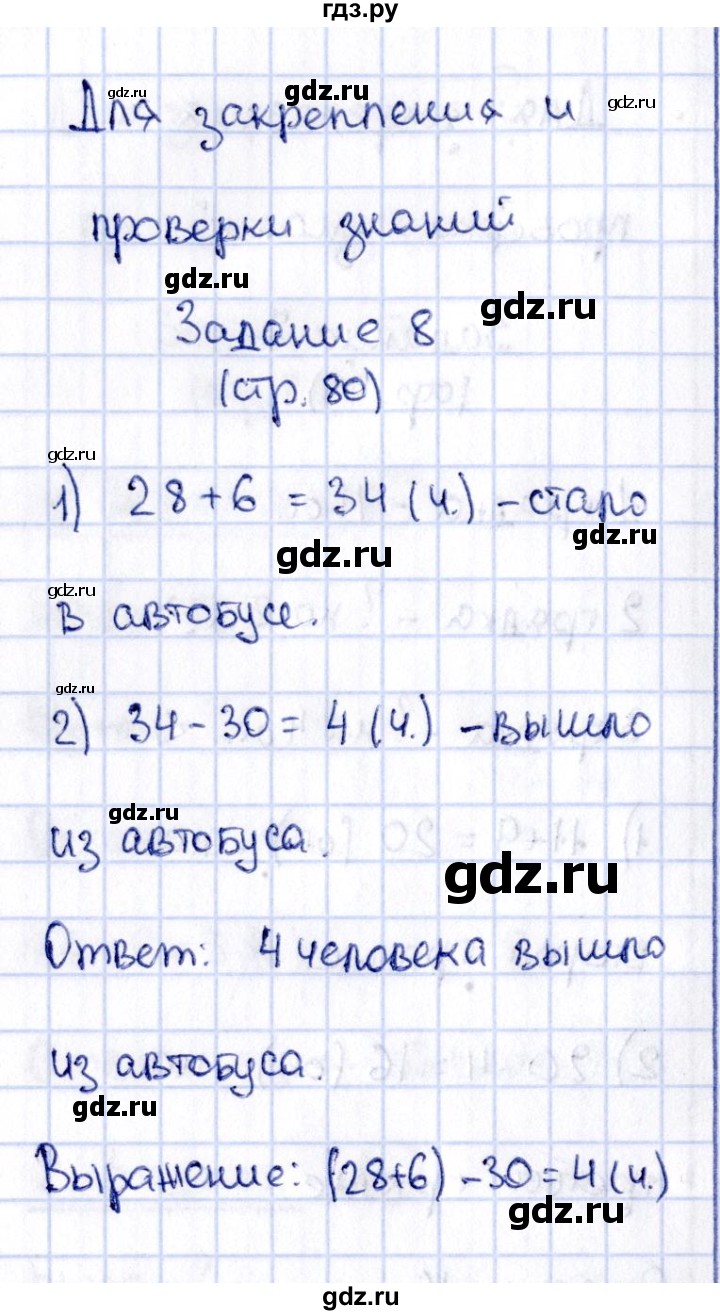 гдз.ру
gdz.ru gdz.ru gdz.ru
Для закрепления и
проверки знаний
gdz.ru gdz.ru
Задание 8
(стр. 80)
gdz.ru
1) 28+6 = 34 (ч.) – стало
gdz.ru gdz.ru
gdz.ru
в автобусе.
gdz.ru
2) 34 - 30 = 4 (ч.) – вышло
gdz.ru
из автобуса.
gdz.ru
Ответ: 4 человека вышло
из автобуса.
gdz.ru
Выражение: (28+6) - 30 = 4 (ч.)
gdz.ru
gdz.ru